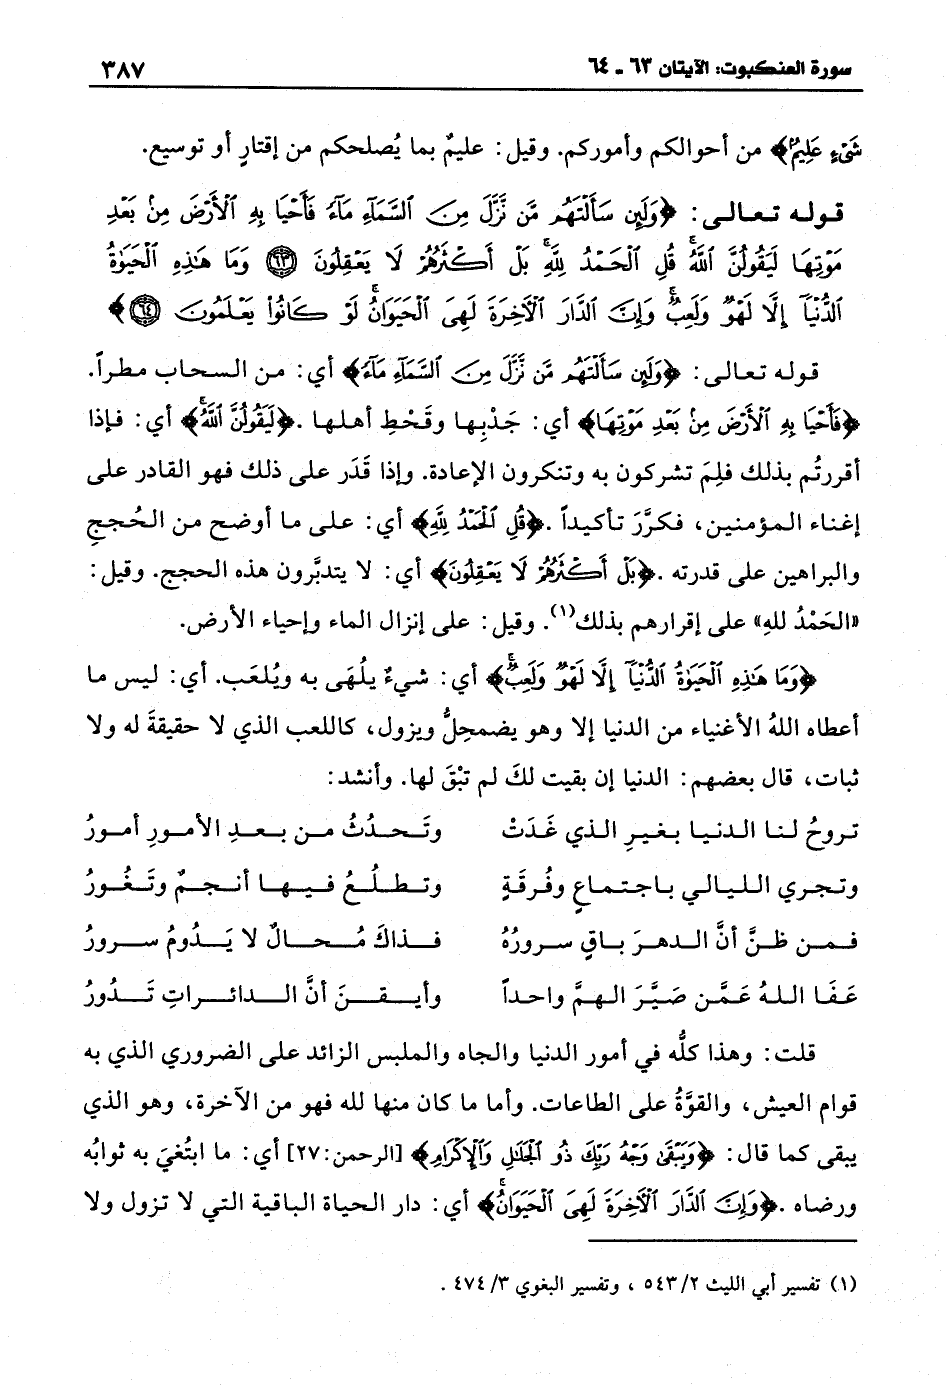 سورة العنكبوت: الآيتان ٦٣ - ٦٤ ٣٨٧
شَيْءٍ عَلِيمٌ﴾ من أحوالكم وأموركم. وقيل: عليمٌ بما يُصلحكم من إقتارٍ أو توسيع.
قوله تعالى: ﴿وَلَئِن سَأَلْتَهُم مَّن نَّزَّلَ مِنَ السَّمَآءِ مَآءً فَأَحْيَا بِهِ الْأَرْضَ مِنْ بَعْدِ
مَوْتِهَا لَيَقُولُنَّ اللَّهُ قُلِ الْحَمْدُ لِلَّهِ بَلْ أَكْثَرُهُمْ لَا يَعْقِلُونَ ۝٦٣ وَمَا هَٰذِهِ الْحَيَوٰةُ
الدُّنْيَآ إِلَّا لَهْوٌ وَلَعِبٌ وَإِنَّ الدَّارَ الْآخِرَةَ لَهِيَ الْحَيَوَانُ لَوْ كَانُوا۟ يَعْلَمُونَ ۝٦٤﴾
قوله تعالى: ﴿وَلَئِن سَأَلْتَهُم مَّن نَّزَّلَ مِنَ السَّمَآءِ مَآءً﴾ أي: من السحاب مطراً.
﴿فَأَحْيَا بِهِ الْأَرْضَ مِنْ بَعْدِ مَوْتِهَا﴾ أي: جَدْبِها وقَحْطِ أهلها. ﴿لَيَقُولُنَّ اللَّهُ﴾ أي: فإذا
أقررتُم بذلك فلِمَ تشركون به وتنكرون الإعادة. وإذا قَدَر على ذلك فهو القادر على
إغناء المؤمنين، فكرَّرَ تأكيداً. ﴿قُلِ الْحَمْدُ لِلَّهِ﴾ أي: على ما أوضح من الحُججِ
والبراهين على قدرته. ﴿بَلْ أَكْثَرُهُمْ لَا يَعْقِلُونَ﴾ أي: لا يتدبَّرون هذه الحجج. وقيل:
«الحَمْدُ للهِ» على إقرارهم بذلك(١). وقيل: على إنزال الماء وإحياء الأرض.
﴿وَمَا هَٰذِهِ الْحَيَوٰةُ الدُّنْيَآ إِلَّا لَهْوٌ وَلَعِبٌ﴾ أي: شيءٌ يُلهَى به ويُلعَب. أي: ليس ما
أعطاه اللهُ الأغنياء من الدنيا إلا وهو يضمحِلُّ ويزول، كاللعب الذي لا حقيقةَ له ولا
ثبات، قال بعضهم: الدنيا إن بقيت لكَ لم تبْقَ لها. وأنشد:
تروحُ لنا الدنيا بغيرِ الذي غَدَتْ وتَحدُثُ من بعدِ الأمورِ أمورُ
وتجري الليالي باجتماعٍ وفُرقَةٍ وتطلُعُ فيها أنجمٌ وتَغُورُ
فمن ظنَّ أنَّ الدهرَ باقٍ سرورُهُ فذاكَ مُحالٌ لا يَدُومُ سرورُ
عَفَا اللهُ عَمَّن صَيَّرَ الهمَّ واحداً وأيقنَ أنَّ الدائراتِ تَدُورُ
قلت: وهذا كلُّه في أمور الدنيا والجاه والملبس الزائد على الضروري الذي به
قوام العيش، والقوَّةُ على الطاعات. وأما ما كان منها لله فهو من الآخرة، وهو الذي
يبقى كما قال: ﴿وَيَبْقَىٰ وَجْهُ رَبِّكَ ذُو الْجَلَالِ وَالْإِكْرَامِ﴾ [الرحمن:٢٧] أي: ما ابتُغيَ به ثوابُه
ورضاه. ﴿وَإِنَّ الدَّارَ الْآخِرَةَ لَهِيَ الْحَيَوَانُ﴾ أي: دار الحياة الباقية التي لا تزول ولا
(١) تفسير أبي الليث ٥٤٣/٢ ، وتفسير البغوي ٤٧٤/٣ .